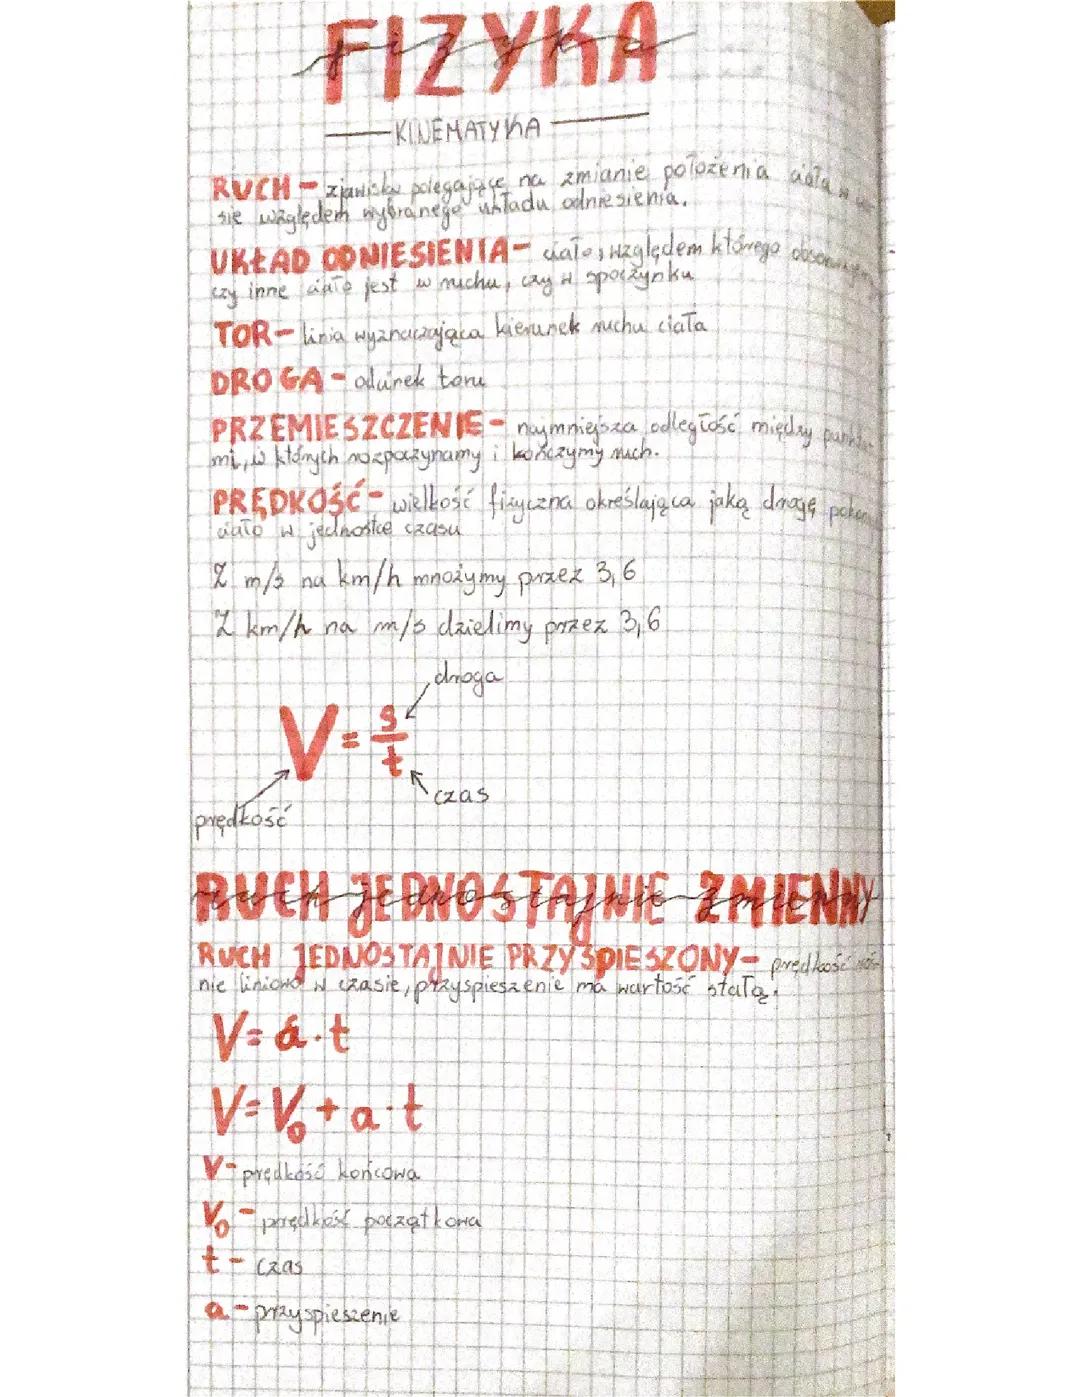 FIZYKA
KINEMATYKA
RUCH - zjawisko polegające na zmianie położenia ciała
się względem wybranego układu odniesienia.
UKŁAD ODNIESIENIA - ciało, względem którego
czy inne ciało jest w ruchu, czy w spoczynku
TOR - linia wyznaczająca kierunek ruchu ciała
DROGA - odcinek toru
PRZEMIESZCZENIE - najmniejsza odległość między
mi, w których rozpoczynamy i kończymy ruch.
PRĘDKOŚĆ - wielkość fizyczna określająca jaką drogę
ciało w jednostce czasu
Z m/s na km/h mnożymy przez 3,6
Z km/h na m/s dzielimy przez 3,6
droga
V = s/t
czas
prędkość
RUCH JEDNOSTAJNIE ZMIENNY
RUCH JEDNOSTAJNIE PRZYSPIESZONY - prędkość roś-
nie liniowo w czasie, przyspieszenie ma wartość stałą.
V = a · t
V = V₀ + a · t
V - prędkość końcowa
V₀ - prędkość początkowa
t - czas
a - przyspieszenie